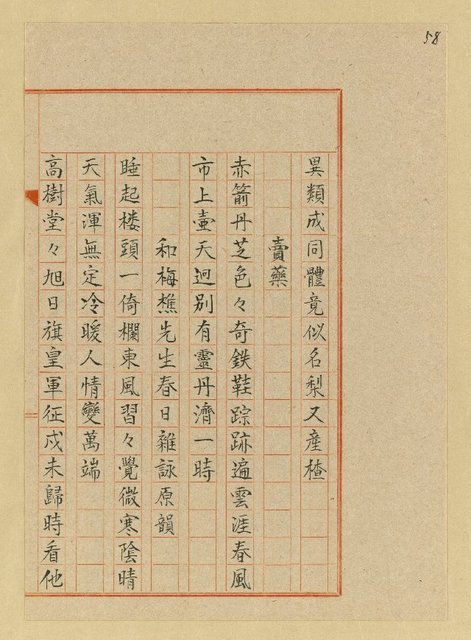 58
異類成同體竟似名梨又產楂
賣藥
赤箭丹芝色々奇鉄鞋踪跡遍雲涯春風
市上壷天迥別有靈丹濟一時
和梅樵先生春日雜詠原韻
睡起楼頭一倚欄東風習々覺微寒陰晴
天氣渾無定冷暖人情變萬端
高樹堂々旭日旗皇軍征戍未歸時看他